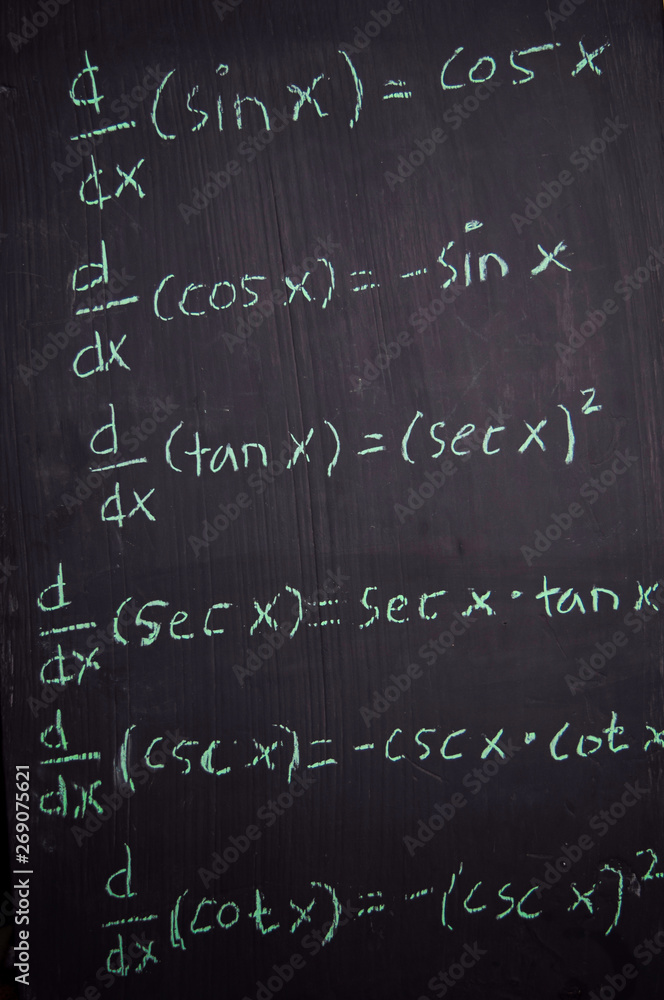 d/dx (sin x) = cos x
d/dx (cos x) = -sin x
d/dx (tan x) = (sec x)²
d/dx (sec x) = sec x · tan x
d/dx (csc x) = -csc x · cot x
d/dx (cot x) = -(csc x)²
Adobe Stock | #269075621